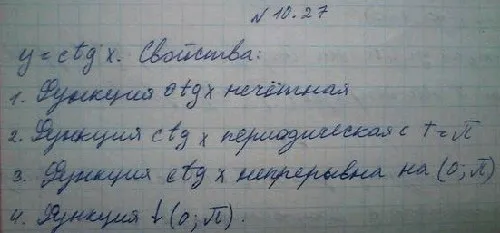 № 10.27
y = ctg x. Свойства:
1. Функция ctg x нечётная
2. Функция ctg x периодическая с T = П
3. Функция ctg x непрерывна на (0; П)
4. Функция ↓ (0; П).